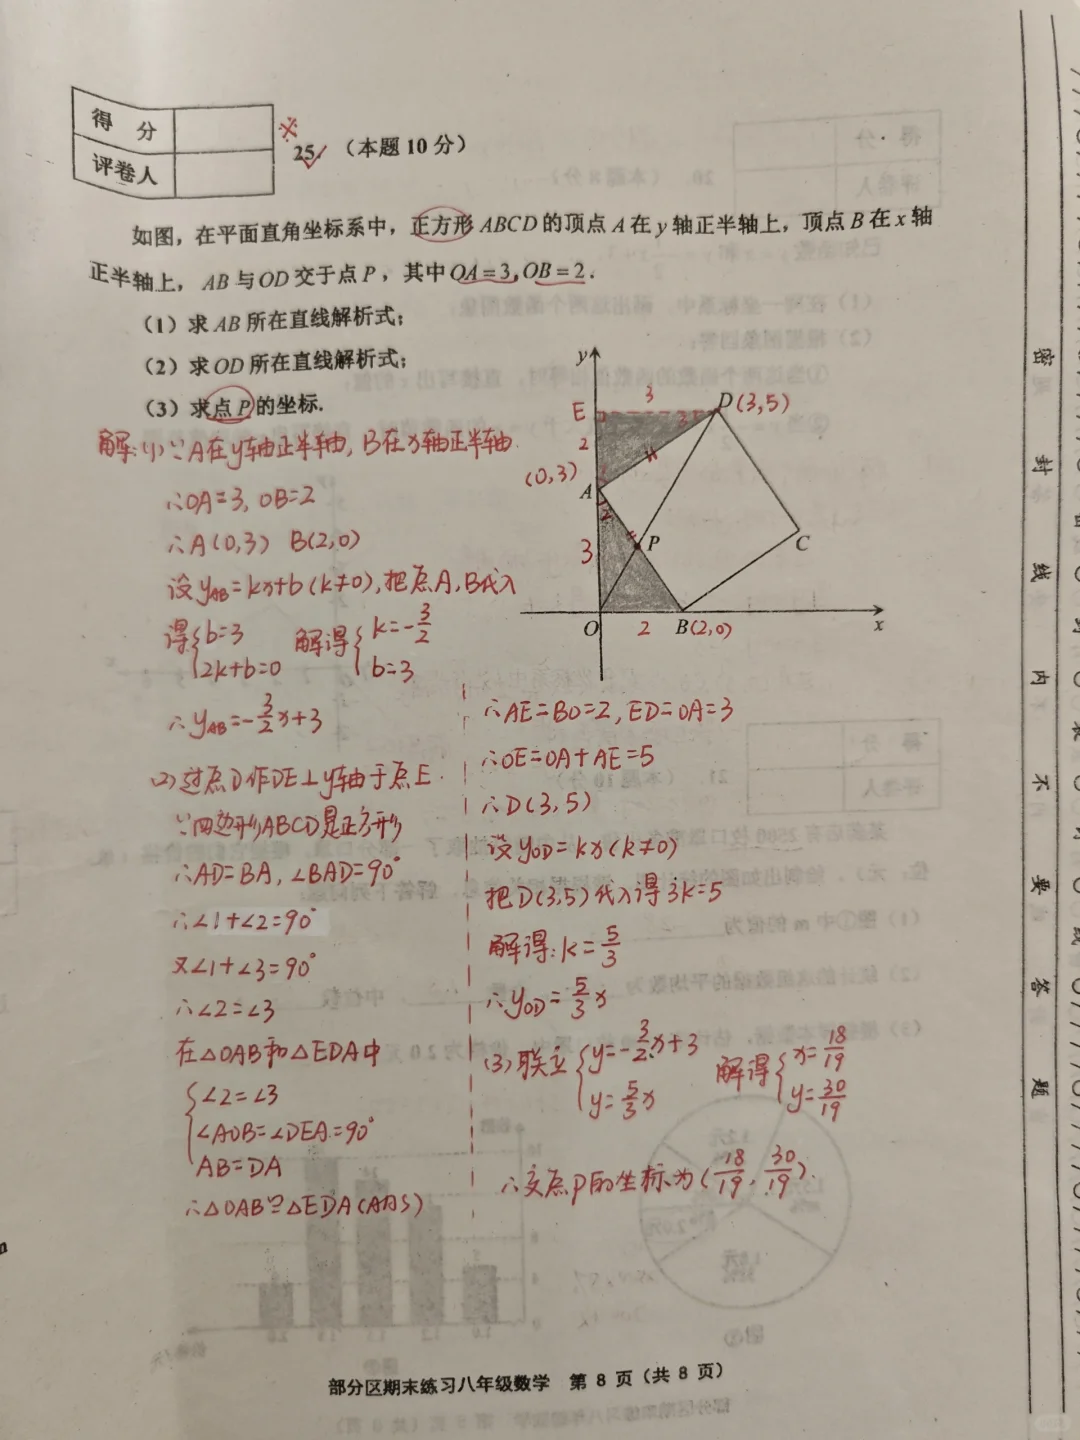 得 分
评卷人
25. (本题10分)
如图，在平面直角坐标系中，正方形ABCD的顶点A在y轴正半轴上，顶点B在x轴
正半轴上，AB与OD交于点P，其中OA=3,OB=2.
(1)求AB所在直线解析式;
(2)求OD所在直线解析式;
(3)求点P的坐标.
y
3
E
3
D(3,5)
2
(0,3)
A
1
2
3
P
C
O
2
B(2,0)
x
解:(1)∵A在y轴正半轴,B在x轴正半轴
∴OA=3,OB=2
∴A(0,3) B(2,0)
设y_AB=kx+b(k≠0),把点A,B代入
得{b=3 2k+b=0 解得{k=-3/2 b=3
∴y_AB=-3/2x+3
(2)过点D作DE⊥y轴于点E.
∵四边形ABCD是正方形
∴AD=BA,∠BAD=90°
∴∠1+∠2=90°
又∠1+∠3=90°
∴∠2=∠3
在△OAB和△EDA中
{∠2=∠3
∠AOB=∠DEA=90°
AB=DA
∴△OAB≌△EDA(AAS)
∴AE=BO=2,ED=OA=3
∴OE=OA+AE=5
∴D(3,5)
设y_OD=kx(k≠0)
把D(3,5)代入得3k=5
解得:k=5/3
∴y_OD=5/3x
(3)联立{y=-3/2x+3 y=5/3x 解得{x=18/19 y=30/19
∴交点P的坐标为(18/19,30/19).
部分区期末练习八年级数学 第8页(共8页)
密
封
线
内
不
要
答
题